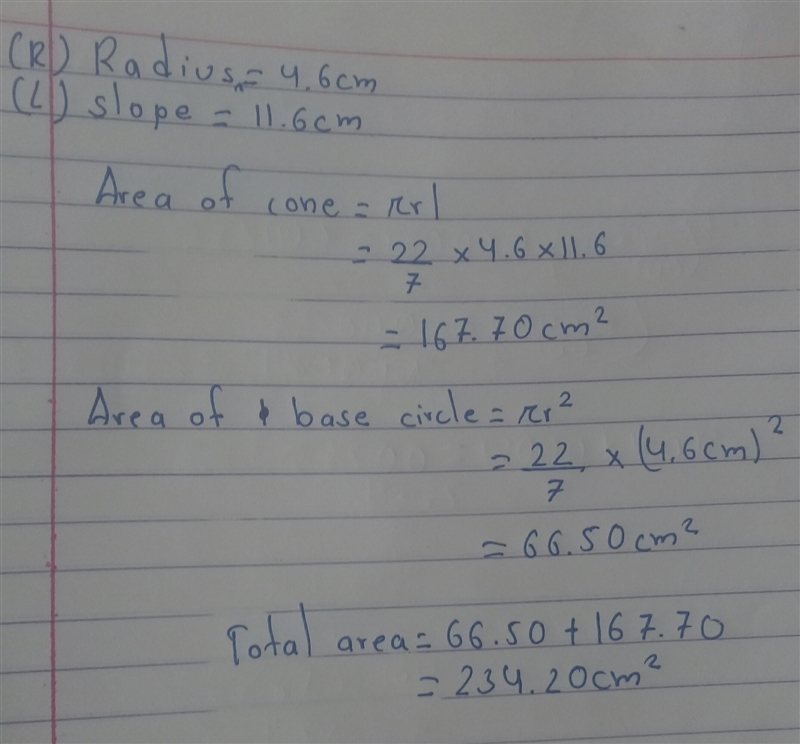 (R) Radius = 4.6cm
(L) slope = 11.6cm
Area of cone = πrl
= 22/7 × 4.6 × 11.6
= 167.70cm²
Area of base circle = πr²
= 22/7 × (4.6cm)²
= 66.50cm²
Total area = 66.50 + 167.70
= 234.20cm²